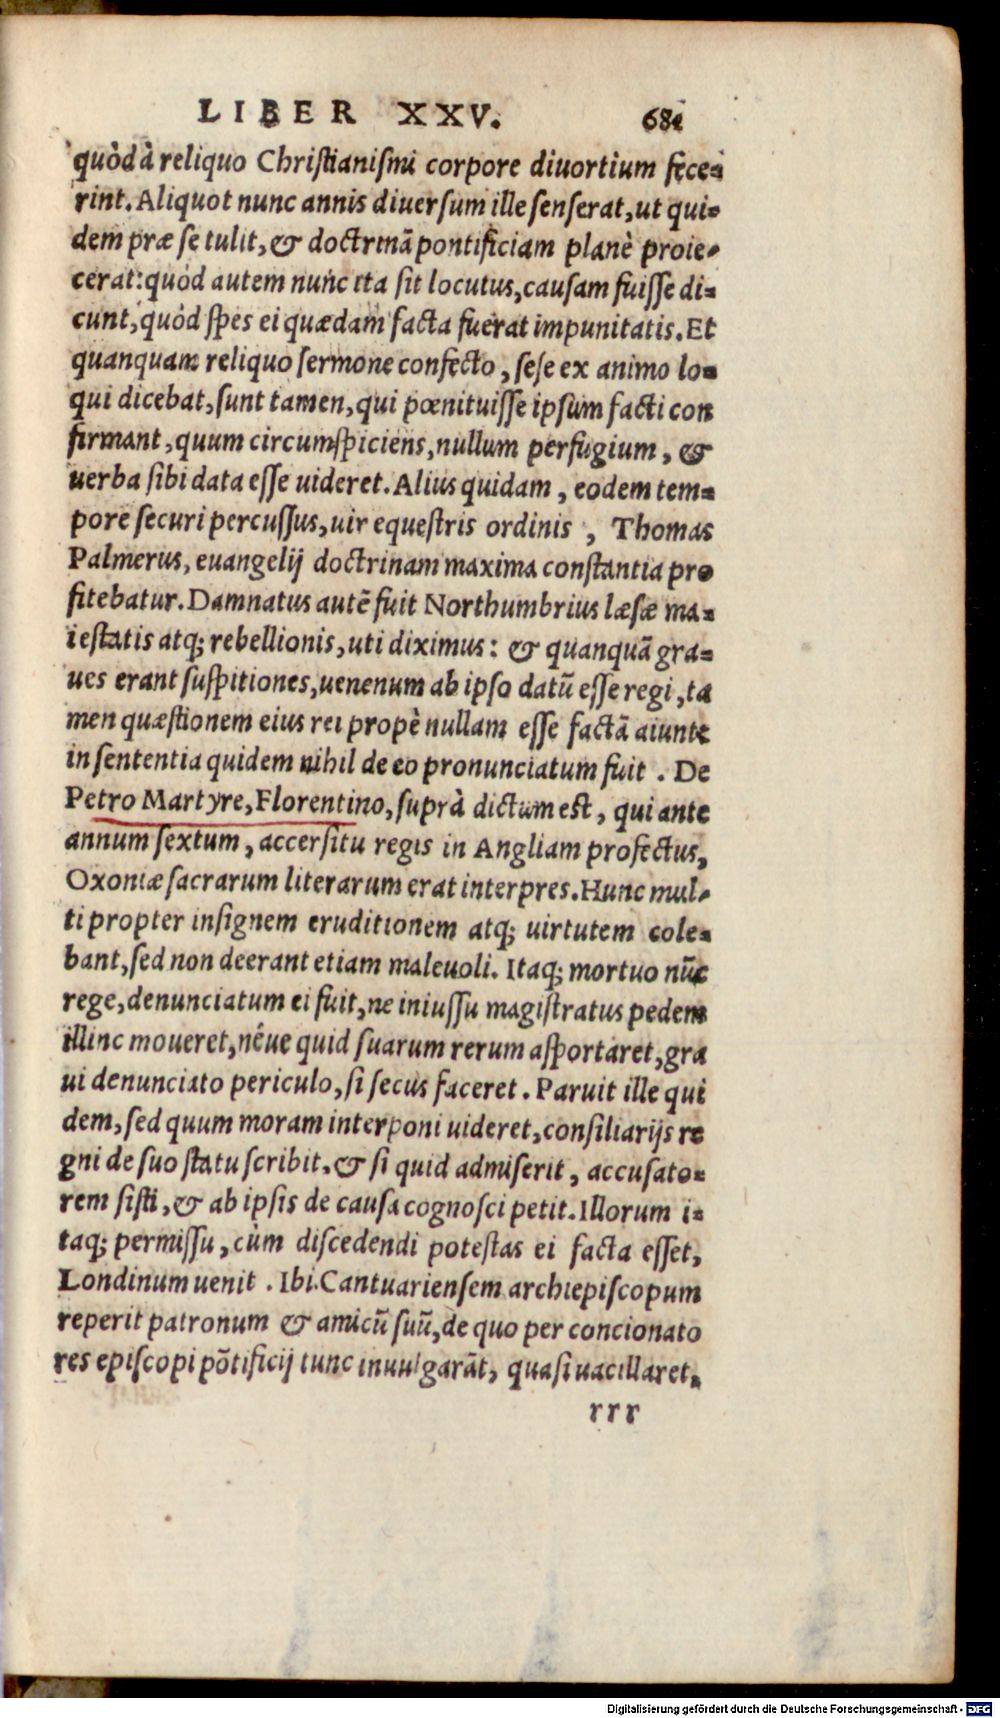 LIBER XXV. 681
quòd à reliquo Christianismi corpore diuortium fece-
rint. Aliquot nunc annis diuersum ille senserat, ut qui-
dem præ se tulit, & doctrinā pontificiam planè proie-
cerat: quòd autem nunc ita sit locutus, causam fuisse di-
cunt, quòd spes ei quædam facta fuerat impunitatis. Et
quanquam reliquo sermone confecto, sese ex animo lo-
qui dicebat, sunt tamen, qui pœnituisse ipsum facti con
firmant, quum circumspiciens, nullum perfugium, &
uerba sibi data esse uideret. Alius quidam, eodem tem-
pore securi percussus, uir equestris ordinis, Thomas
Palmerus, euangelij doctrinam maxima constantia pro
fitebatur. Damnatus autē fuit Northumbrius læsæ ma-
iestatis atq; rebellionis, uti diximus: & quanquā gra-
ues erant suspitiones, uenenum ab ipso datū esse regi, ta
men quæstionem eius rei propè nullam esse factā aiunt:
in sententia quidem nihil de eo pronunciatum fuit. De
Petro Martyre, Florentino, suprà dictum est, qui ante
annum sextum, accersitu regis in Angliam profectus,
Oxoniæ sacrarum literarum erat interpres. Hunc mul-
ti propter insignem eruditionem atq; uirtutem cole-
bant, sed non deerant etiam maleuoli. Itaq; mortuo nūc
rege, denunciatum ei fuit, ne iniussu magistratus pedem
illinc moueret, néue quid suarum rerum asportaret, gra
ui denunciato periculo, si secus faceret. Paruit ille qui
dem, sed quum moram interponi uideret, consiliarijs re
gni de suo statu scribit, & si quid admiserit, accusato-
rem sisti, & ab ipsis de causa cognosci petit. Illorum i-
taq; permissu, cùm discedendi potestas ei facta esset,
Londinum uenit. Ibi Cantuariensem archiepiscopum
reperit patronum & amicū suū, de quo per concionato
res episcopi pōtificij tunc inuulgarāt, quasi uacillaret,
rrr
Digitalisierung gefördert durch die Deutsche Forschungsgemeinschaft - DFG